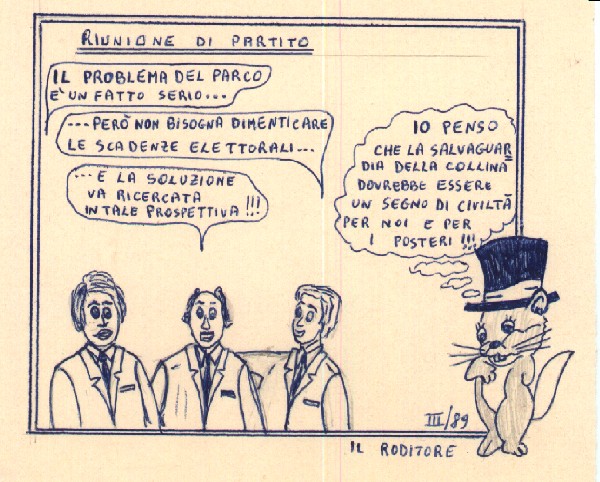 RIUNIONE DI PARTITO
IL PROBLEMA DEL PARCO
E' UN FATTO SERIO...
...PERÒ NON BISOGNA DIMENTICARE
LE SCADENZE ELETTORALI...
...E LA SOLUZIONE
VA RICERCATA
IN TALE PROSPETTIVA!!!
IO PENSO
CHE LA SALVAGUAR
DIA DELLA COLLINA
DOVREBBE ESSERE
UN SEGNO DI CIVILTÀ
PER NOI E PER
I POSTERI!!!
III/89
IL RODITORE